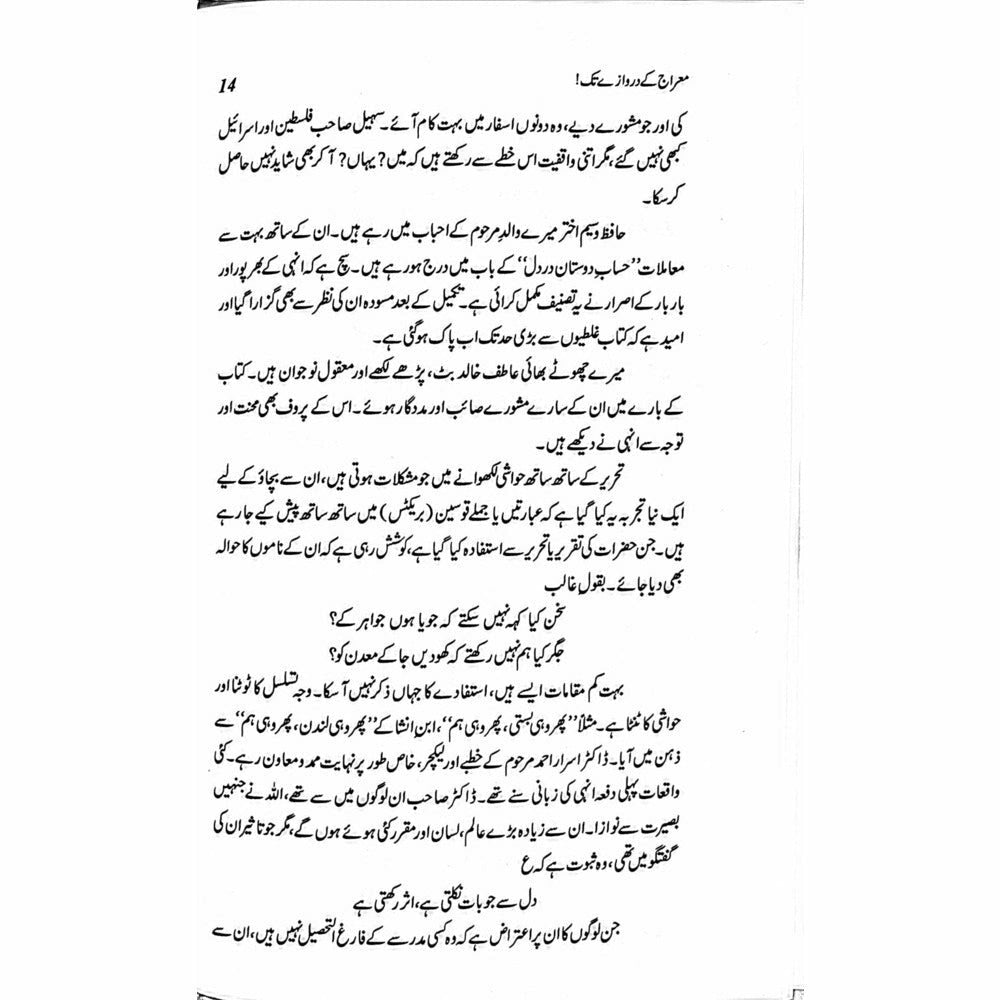 معراج کے دروازے تک!
14
کی اور جو مشورے دیے، وہ دونوں اسفار میں بہت کام آئے۔ سہیل صاحب فلسطین اور اسرائیل
کبھی نہیں گئے، مگر اتنی واقفیت اس خطے سے رکھتے ہیں کہ میں؟ یہاں؟ آ کر بھی شاید نہیں حاصل
کر سکا۔
حافظ وسیم اختر میرے والدِ مرحوم کے احباب میں رہے ہیں۔ ان کے ساتھ بہت سے
معاملات ’’حسابِ دوستان در دل‘‘ کے باب میں درج ہو رہے ہیں۔ سچ ہے کہ انہی کے بھرپور اور
بار بار کے اصرار نے یہ تصنیف مکمل کرائی ہے۔ تکمیل کے بعد مسودہ ان کی نظر سے بھی گزارا گیا اور
امید ہے کہ کتاب غلطیوں سے بڑی حد تک اب پاک ہو گئی ہے۔
میرے چھوٹے بھائی عاطف خالد بٹ، پڑھے لکھے اور معقول نوجوان ہیں۔ کتاب
کے بارے میں ان کے سارے مشورے صائب اور مددگار ہوئے۔ اس کے پروف بھی محنت اور
توجہ سے انہی نے دیکھے ہیں۔
تحریر کے ساتھ ساتھ حواشی لکھوانے میں جو مشکلات ہوتی ہیں، ان سے بچاؤ کے لیے
ایک نیا تجربہ یہ کیا گیا ہے کہ عبارتیں یا جملے قوسین (بریکٹس) میں ساتھ ساتھ پیش کیے جا رہے
ہیں۔ جن حضرات کی تقریر یا تحریر سے استفادہ کیا گیا ہے، کوشش رہی ہے کہ ان کے ناموں کا حوالہ
بھی دیا جائے۔ بقولِ غالب
سخن کیا کہہ نہیں سکتے کہ جویا ہوں جواہر کے؟
جگر کیا ہم نہیں رکھتے کہ کھودیں جا کے معدن کو؟
بہت کم مقامات ایسے ہیں، استفادے کا جہاں ذکر نہیں آ سکا۔ وجہ تسلسل کا ٹوٹنا اور
حواشی کا ٹنٹا ہے۔ مثلاً ’’پھر وہی بستی، پھر وہی ہم‘‘، ابنِ انشا کے ’’پھر وہی لندن، پھر وہی ہم‘‘ سے
ذہن میں آیا۔ ڈاکٹر اسرار احمد مرحوم کے خطبے اور لیکچر، خاص طور پر نہایت ممد و معاون رہے۔ کئی
واقعات پہلی دفعہ انہی کی زبانی سنے تھے۔ ڈاکٹر صاحب ان لوگوں میں سے تھے، اللہ نے جنہیں
بصیرت سے نوازا۔ ان سے زیادہ بڑے عالم، لسان اور مقرر کئی ہوئے ہوں گے، مگر جو تاثیر ان کی
گفتگو میں تھی، وہ ثبوت ہے کہ ع
دل سے جو بات نکلتی ہے، اثر رکھتی ہے
جن لوگوں کا ان پر اعتراض ہے کہ وہ کسی مدرسے کے فارغ التحصیل نہیں ہیں، ان سے